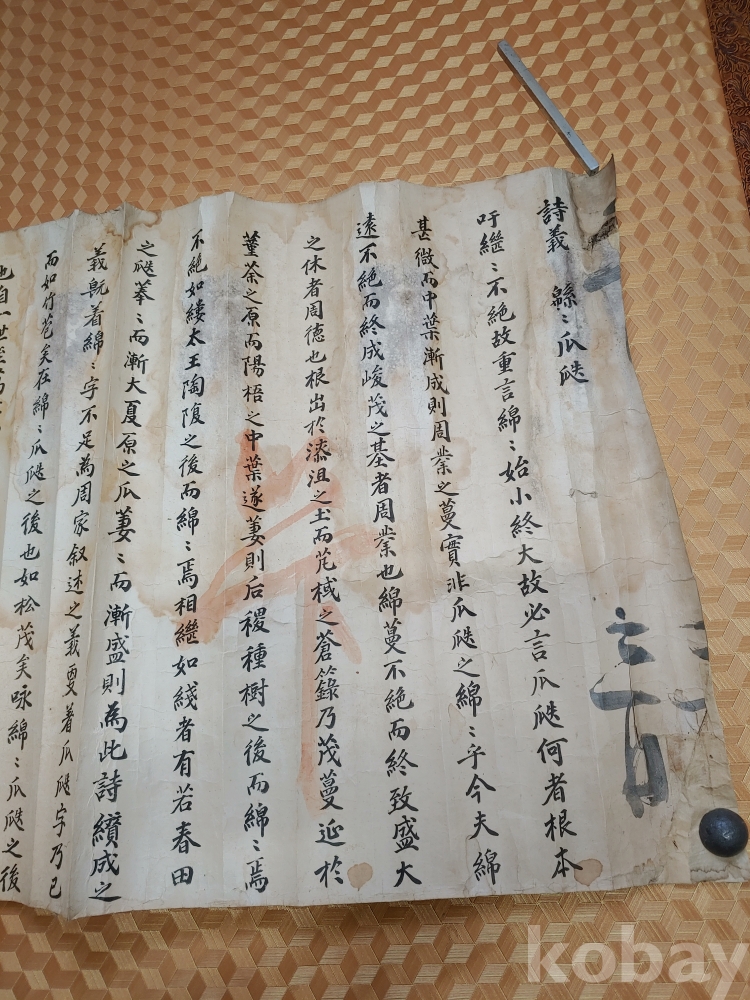 詩義 緜〻瓜瓞
吁繼〻不絶故重言綿〻始小終大故必言瓜瓞何者根本
甚微而中葉漸成則周業之蔓實非瓜瓞之綿〻乎今夫綿
遠不絶而終成峻茂之基者周業也綿蔓不絶而終致盛大
之休者周德也根出於漆沮之土而芃棫之蒼籙乃茂蔓延於
菫荼之原而陽梧之中葉遂萋則后稷種樹之後而綿〻焉
不絶如縷太王陶復之後而綿〻焉相繼如綫者有若春田
之瓞菶〻而漸大夏原之瓜萋〻而漸盛則為此詩纘成之
義旣着綿〻字不足為周家叙述之義更着瓜瓞字乃已
而如竹苞矣在綿〻瓜瓞之後也如松茂矣咏綿〻瓜瓞之後
也自一世至
kobay